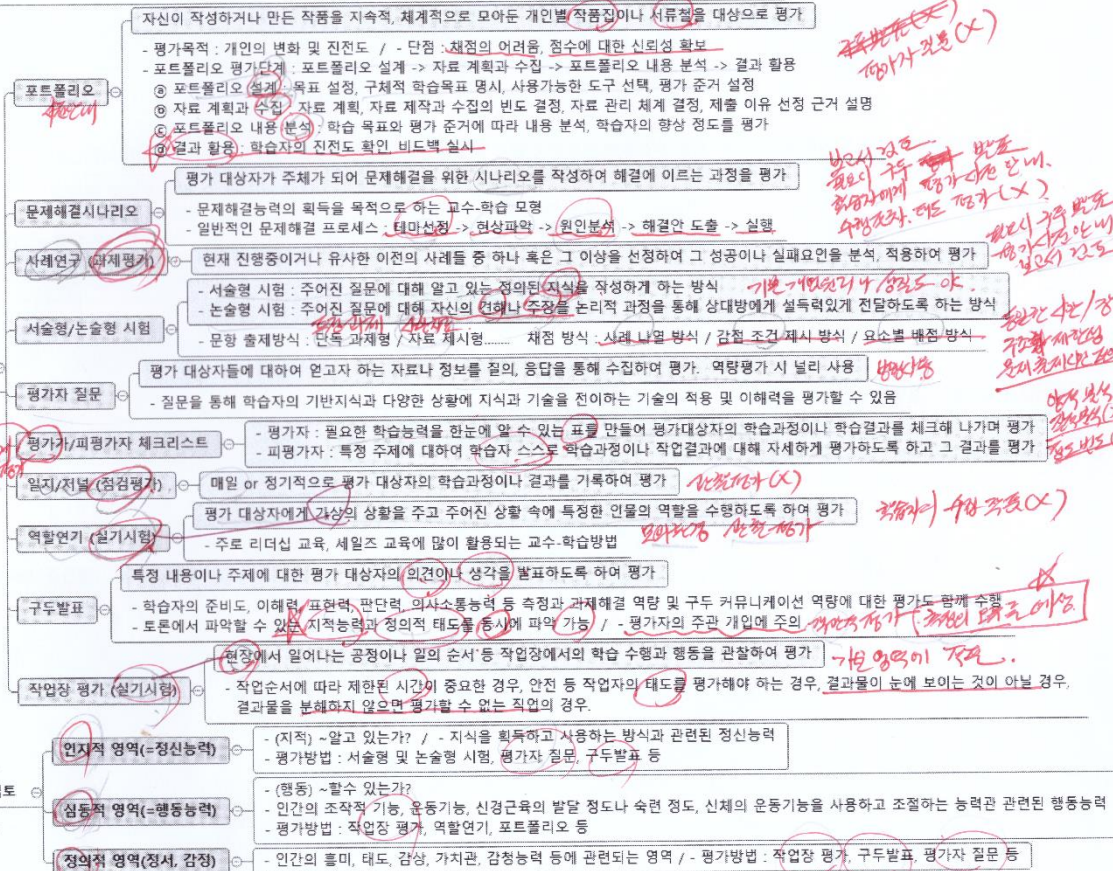 자신이 작성하거나 만든 작품을 지속적, 체계적으로 모아둔 개인별 작품집이나 서류철을 대상으로 평가
평가자 질문(X)
- 평가목적 : 개인의 변화 및 진전도 / - 단점 : 채점의 어려움, 점수에 대한 신뢰성 확보
- 포트폴리오 평가단계 : 포트폴리오 설계 -> 자료 계획과 수집 -> 포트폴리오 내용 분석 -> 결과 활용
포트폴리오
ⓐ 포트폴리오 설계 : 목표 설정, 구체적 학습목표 명시, 사용가능한 도구 선택, 평가 준거 설정
ⓑ 자료 계획과 수집 : 자료 계획, 자료 제작과 수집의 빈도 결정, 자료 관리 체계 결정, 제출 이유 선정 근거 설명
ⓒ 포트폴리오 내용 분석 : 학습 목표와 평가 준거에 따라 내용 분석, 학습자의 향상 정도를 평가
ⓓ 결과 활용 : 학습자의 진전도 확인, 비드백 실시
평가 대상자가 주체가 되어 문제해결을 위한 시나리오를 작성하여 해결에 이르는 과정을 평가
문제해결시나리오
- 문제해결능력의 획득을 목적으로 하는 교수-학습 모형
- 일반적인 문제해결 프로세스 : 테마선정 -> 현상파악 -> 원인분석 -> 해결안 도출 -> 실행
사례연구 (과제평가)
현재 진행중이거나 유사한 이전의 사례들 중 하나 혹은 그 이상을 선정하여 그 성공이나 실패요인을 분석, 적용하여 평가
서술형/논술형 시험
- 서술형 시험 : 주어진 질문에 대해 알고 있는 정의된 지식을 작성하게 하는 방식
- 논술형 시험 : 주어진 질문에 대해 자신의 견해나 주장을 논리적 과정을 통해 상대방에게 설득력있게 전달하도록 하는 방식
- 문항 출제방식 : 단독 과제형 / 자료 제시형...... 채점 방식 : 사례 나열 방식 / 감점 조건 제시 방식 / 요소별 배점 방식
평가 대상자들에 대하여 얻고자 하는 자료나 정보를 질의, 응답을 통해 수집하여 평가. 역량평가 시 널리 사용
평가자 질문
- 질문을 통해 학습자의 기반지식과 다양한 상황에 지식과 기술을 전이하는 기술의 적용 및 이해력을 평가할 수 있음
평가가/피평가자 체크리스트
- 평가자 : 필요한 학습능력을 한눈에 알 수 있는 표를 만들어 평가대상자의 학습과정이나 학습결과를 체크해 나가며 평가
- 피평가자 : 특정 주제에 대하여 학습자 스스로 학습과정이나 작업결과에 대해 자세하게 평가하도록 하고 그 결과를 평가
일지/저널 (점검평가)
매일 or 정기적으로 평가 대상자의 학습과정이나 결과를 기록하여 평가
평가 대상자에게 가상의 상황을 주고 주어진 상황 속에 특정한 인물의 역할을 수행하도록 하여 평가
역할연기 (실기시험)
- 주로 리더십 교육, 세일즈 교육에 많이 활용되는 교수-학습방법
특정 내용이나 주제에 대한 평가 대상자의 의견이나 생각을 발표하도록 하여 평가
구두발표
- 학습자의 준비도, 이해력, 표현력, 판단력, 의사소통능력 등 측정과 과제해결 역량 및 구두 커뮤니케이션 역량에 대한 평가도 함께 수행
- 토론에서 파악할 수 있는 지적능력과 정의적 태도를 동시에 파악 가능 / - 평가자의 주관 개입에 주의
현장에서 일어나는 공정이나 일의 순서 등 작업장에서의 학습 수행과 행동을 관찰하여 평가
작업장 평가 (실기시험)
- 작업순서에 따라 제한된 시간이 중요한 경우, 안전 등 작업자의 태도를 평가해야 하는 경우, 결과물이 눈에 보이는 것이 아닐 경우,
결과물을 분해하지 않으면 평가할 수 없는 직업의 경우.
인지적 영역(=정신능력)
- (지적) ~알고 있는가? / - 지식을 획득하고 사용하는 방식과 관련된 정신능력
- 평가방법 : 서술형 및 논술형 시험, 평가자 질문, 구두발표 등
심동적 영역(=행동능력)
- (행동) ~할수 있는가?
- 인간의 조작적 기능, 운동기능, 신경근육의 발달 정도나 숙련 정도, 신체의 운동기능을 사용하고 조절하는 능력관 관련된 행동능력
- 평가방법 : 작업장 평가, 역할연기, 포트폴리오 등
정의적 영역(정서, 감정)
- 인간의 흥미, 태도, 감상, 가치관, 감청능력 등에 관련되는 영역 / - 평가방법 : 작업장 평가, 구두발표, 평가자 질문 등